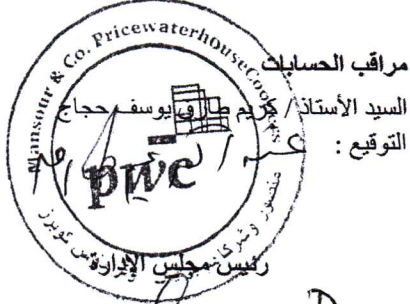 مراقب الحسابات
السيد الأستاذ / كريم طارق يوسف حجاج
التوقيع :
Mansour & Co. PricewaterhouseCoopers
pwc
منصور وشركاه
كوبرز
رئيس مجلس الإدارة